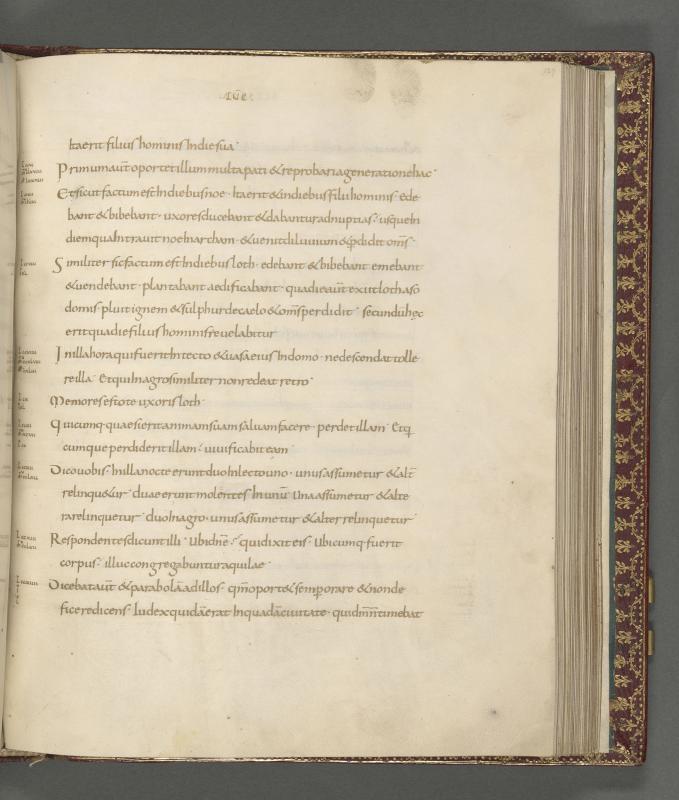 LUC
ita erit filius hominis In die sua
Primum aut̄ oportet illum multa pati & reprobari a generatione hac
Et sicut factum est In diebus noe · ita erit & in diebus filii hominis · ede
bant & bibebant · uxores ducebant & dabantur ad nuptias · usque In
diem qua Intrauit noe In archam · & uenit diluuium & p̱didit om̄s ·
Similiter sic factum est In diebus loth · edebant & bibebant emebant
& uendebant · plantabant aedificabant · qua die aut̄ exiit loth a so
domis · pluit ignem & sulphur de caelo & om̄s perdidit · secundū hęc
erit qua die filius hominis reuelabitur
In illa hora qui fuerit In tecto & uasa eius In domo · ne descendat tolle
re illa · Et qui In agro similiter non redeat retro ·
Memores estote uxoris loth ·
Quicumq; quaesierit animam suam saluam facere · perdet illam · Etq
cumque perdiderit illam · uiuificabit eam
Dico uobis · In illa nocte erunt duo In lecto uno · unus assumetur & alt̄
relinquetur · duae erunt molentes In unū Una assumetur & alte
ra relinquetur · duo In agro · unus assumetur & alter relinquetur
Respondentes dicunt illi · Ubi dn̄e · qui dixit eis · Ubicumq; fuerit
corpus · illuc congregabuntur aquilae ·
Dicebat aut̄ & parabolā ad illos · qm̄ oport& semp orare & non de
ficere dicens · Iudex quidā erat In quadā ciuitate · qui dm̄ n̄ timebat